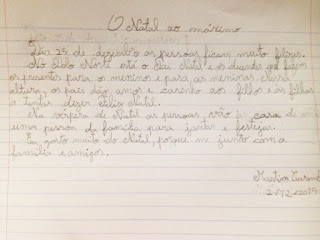 O Natal ao máximo
Dia 25 de dezembro as pessoas ficam muito felizes.
No Polo Norte está o Pai Natal e os duendes que fazem
os presentes para o menino e para as meninas. Nessa
altura, os pais dão amor e carinho aos filhos e às filhas
a tentar dizer Feliz Natal.
Na véspera de Natal as pessoas vão à casa de
uma pessoa da família para jantar e festejar.
Eu gosto muito do Natal, porque me junto com a
família e amigos.